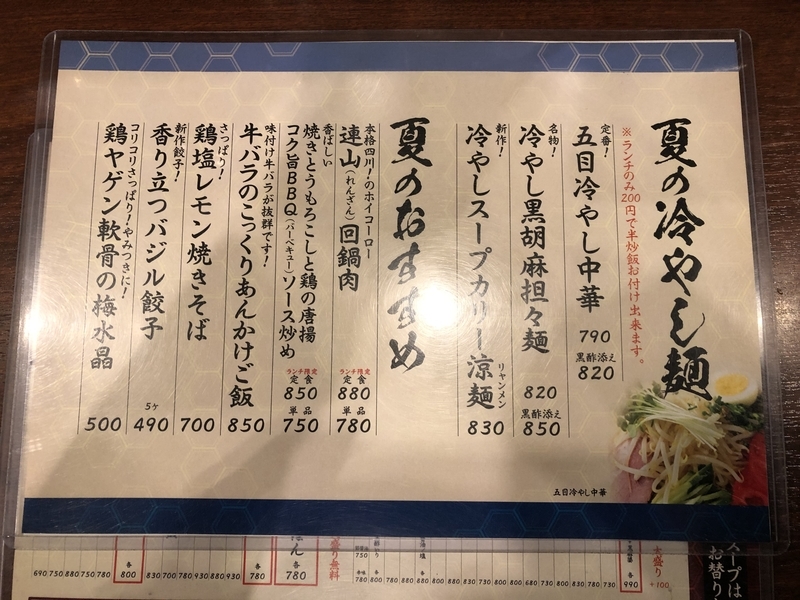 夏の冷やし麺
※ランチのみ200円で半炒飯お付け出来ます。
定番!
五目冷やし中華
790
黒酢添え
820
名物!
冷やし黒胡麻担々麺
820
黒酢添え
850
新作!
冷やしスープカリー涼麺
リャンメン
830
夏のおすすめ
本格四川!のホイコーロー
連山(れんざん)回鍋肉
ランチ限定
定食
880
単品
780
香ばしい
焼きとうもろこしと鶏の唐揚
コク旨BBQ(バーベキュー)ソース炒め
ランチ限定
定食
850
単品
750
味付け牛バラが抜群です!
牛バラのこっくりあんかけご飯
850
さっぱり!
鶏塩レモン焼きそば
700
新作餃子!
香り立つバジル餃子
5ケ
490
コリコリさっぱり!やみつきに!
鶏ヤゲン軟骨の梅水晶
500
五目冷やし中華
大盛り
+100
各
990
盛り無料
各
780
各
780
各
800
スープは
お替り
690 750 880 750 780
830 700 780 930 880 930